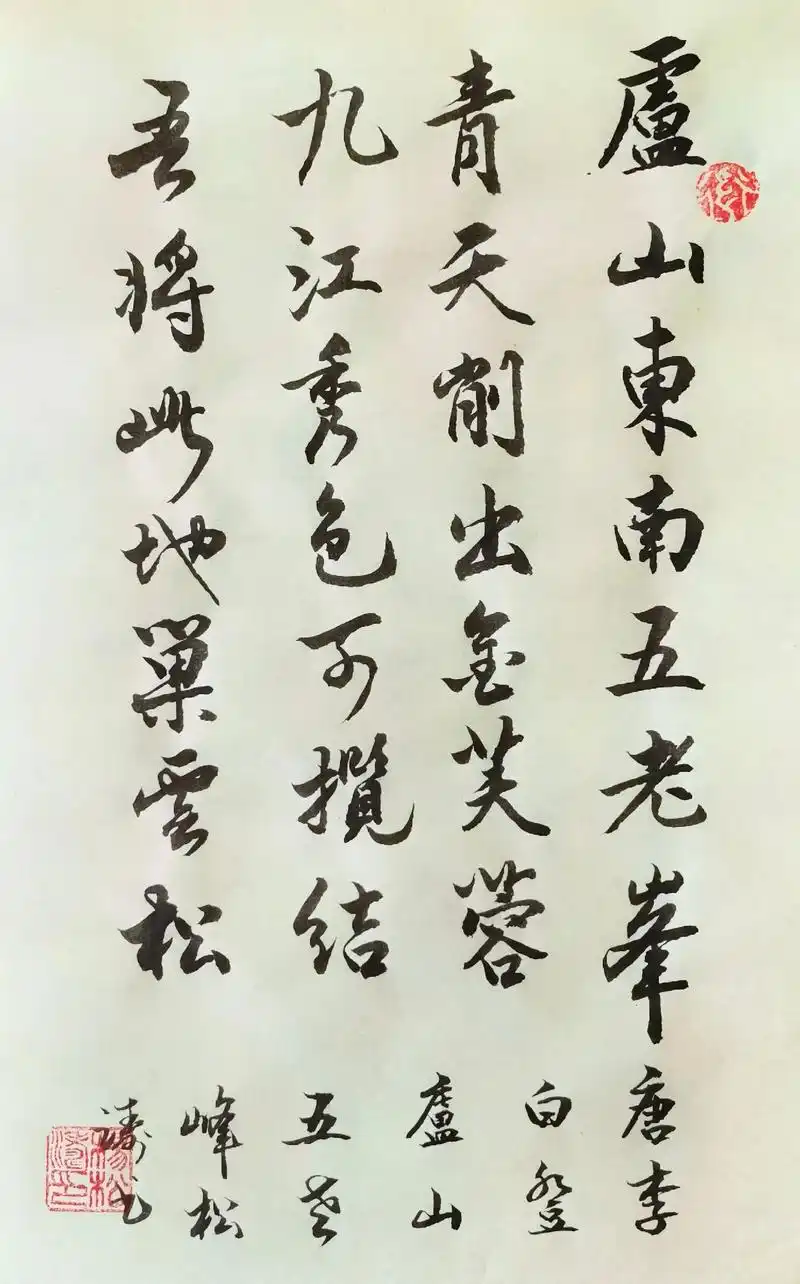 盧山東南五老峯
青天削出金芙蓉
九江秀色可攬結
吾將此地巢雲松
唐李
白登
盧山
五老
峰松
濤書